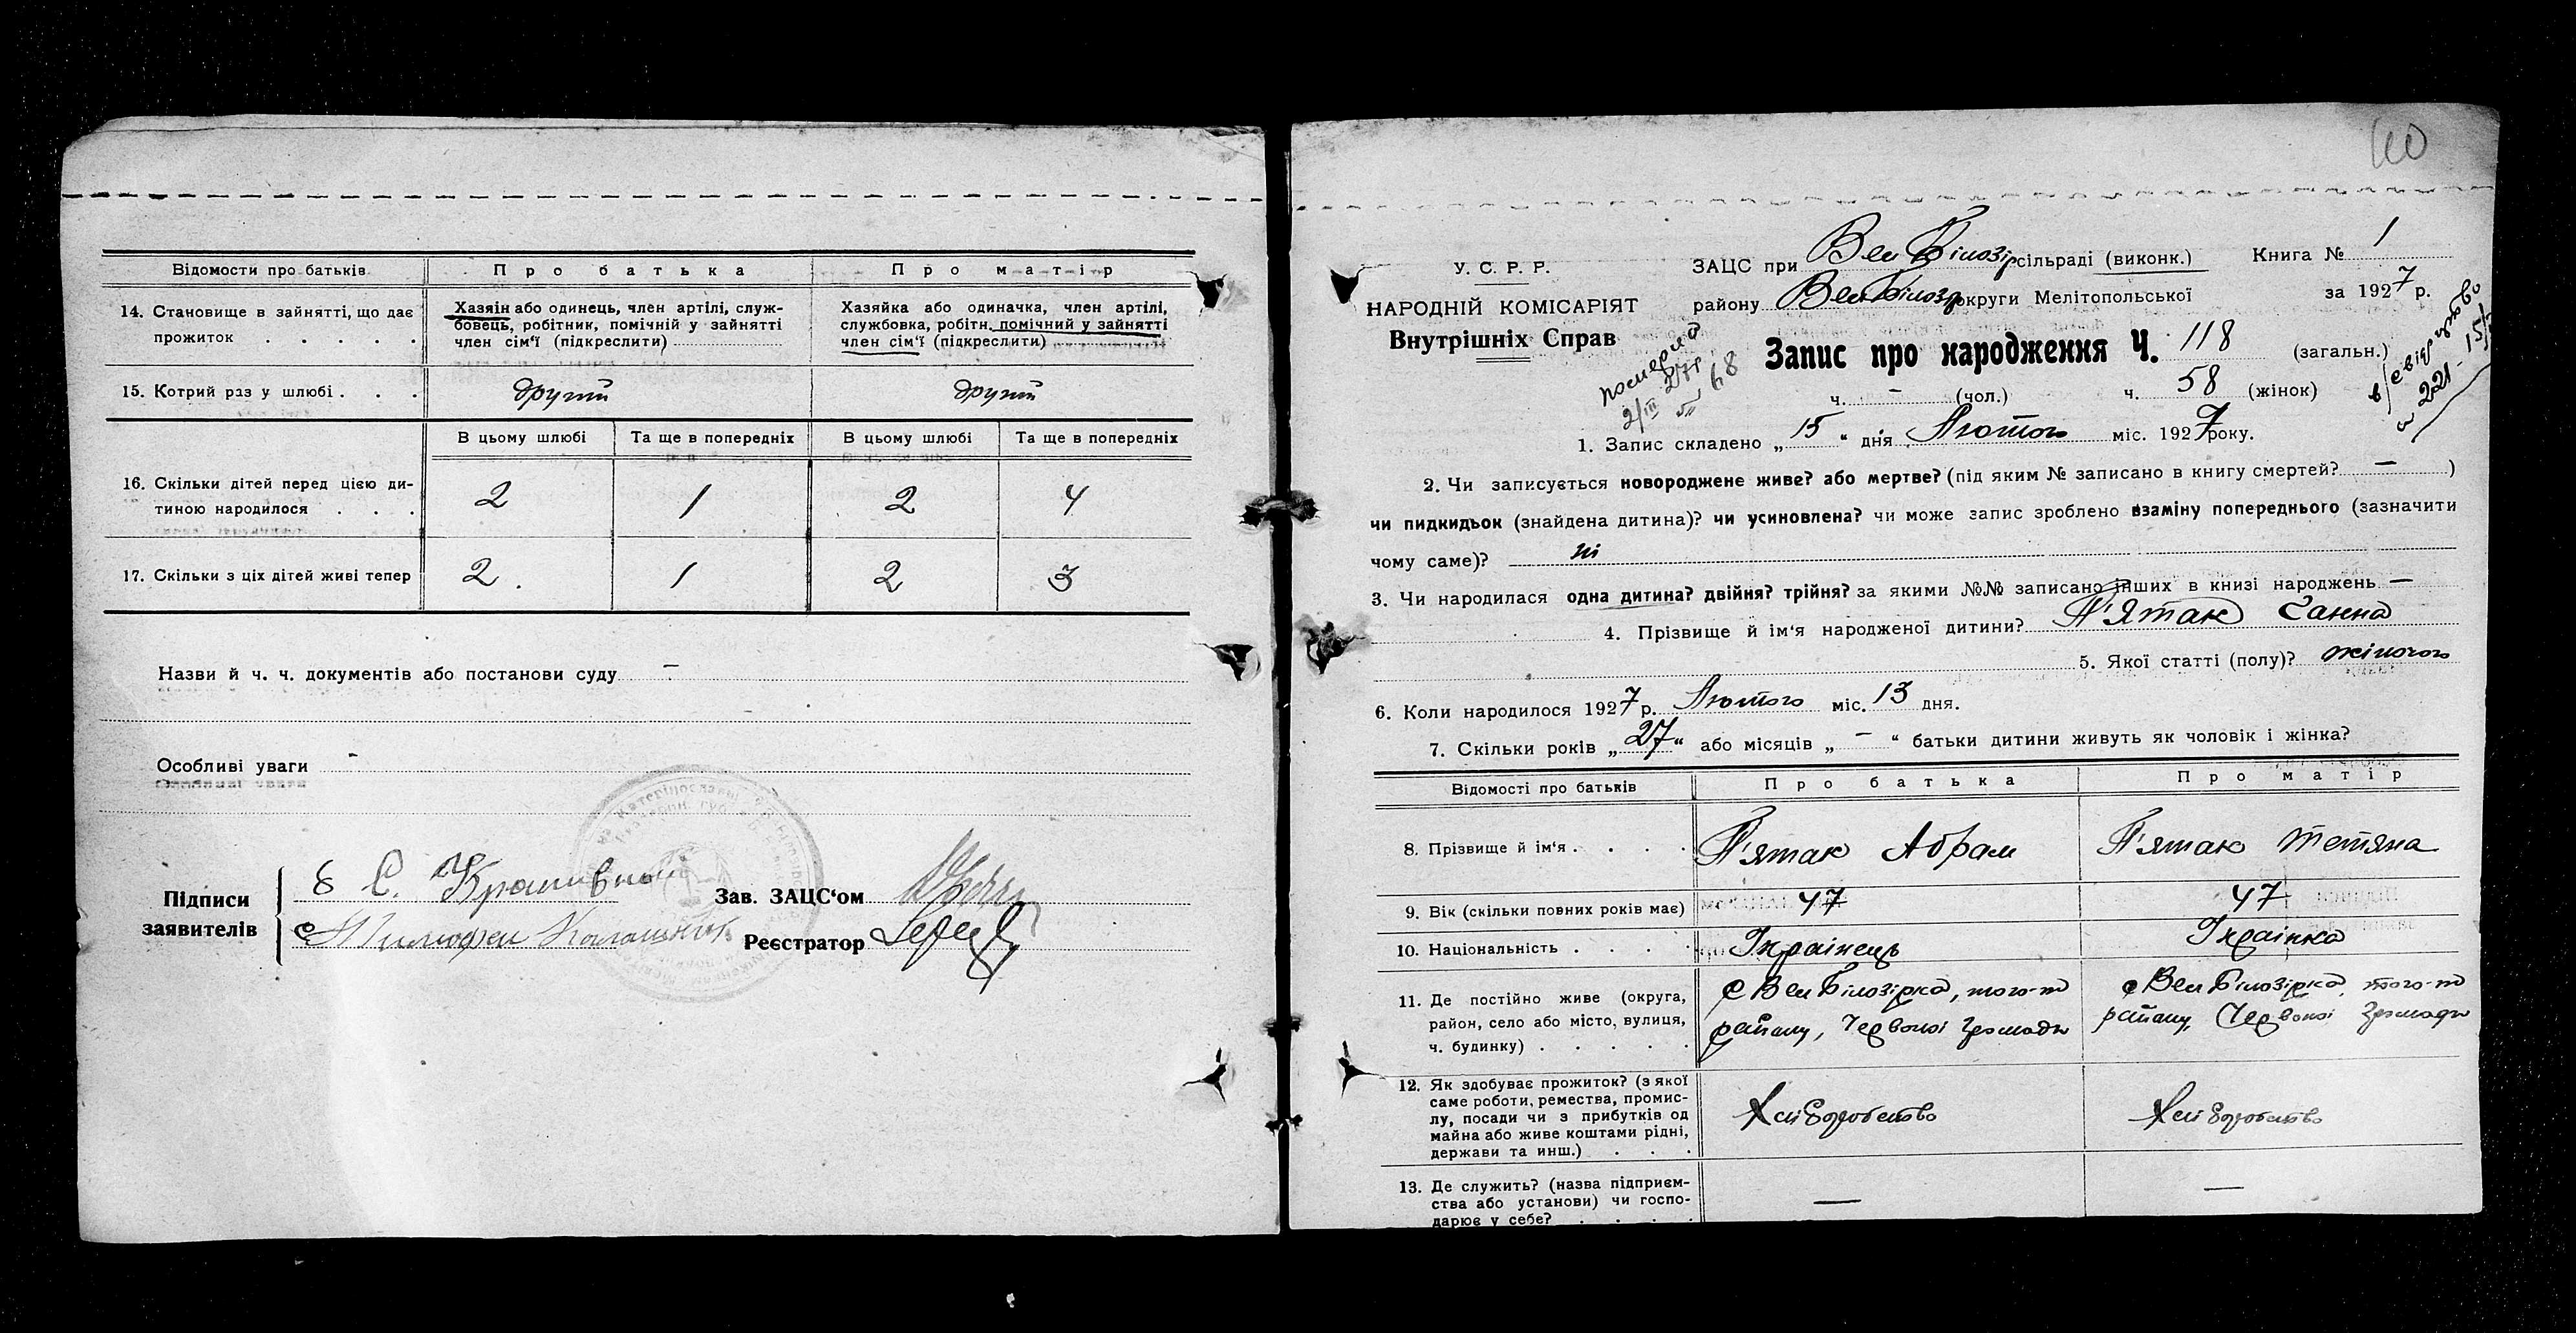 Відомости про батьків
Про батька
Про матір
14. Становище в зайнятті, що дає прожиток
Хазяїн або одинець, член артілі, служ-
бовець, робітник, помічній у зайнятті
член сім'ї (підкреслити)
Хазяйка або одиначка, член артілі,
службовка, робітн. помічний у зайнятті
член сім'ї (підкреслити)
15. Котрий раз у шлюбі . . .
другий
другий
В цьому шлюбі
Та ще в попередніх
В цьому шлюбі
Та ще в попередніх
16. Скільки дітей перед цією ди-
тиною народилося . . .
2
1
2
4
17. Скільки з ціх дітей живі тепер
2
1
2
3
Назви й ч. ч. документів або постанови суду —
Особливі уваги -
Підписи
заявителів
Зав. ЗАЦС'ом
Реєстратор
110
У. С. Р. Р.
НАРОДНІЙ КОМІСАРІЯТ
Внутрішніх Справ
ЗАЦС при Вел Білозір сільраді (виконк.) Книга № 1
району Вел Білозір округи Мелітопольської за 1927 р.
Запис про народження Ч. 118 (загальн.)
ч. — (чол.) ч. 58 (жінок)
1. Запис складено „15" дня Лютого міс. 1927 року.
2. Чи записується новороджене живе? або мертве? (під яким № записано в книгу смертей? — )
чи пидкидьок (знайдена дитина)? чи усиновлена? чи може запис зроблено взаміну попереднього (зазначити
чому саме)? ні
3. Чи народилася одна дитина? двійня? трійня? за якими №№ записано інших в книзі народжень —
4. Прізвище й ім'я народженої дитини? П'ятак Ганна
5. Якої статті (полу)? жіночого
6. Коли народилося 1927 р. Лютого міс. 13 дня.
7. Скільки років „27" або місяців „—" батьки дитини живуть як чоловік і жінка?
Відомості про батьків
Про батька
Про матір
8. Прізвище й ім'я . . . .
П'ятак Абрам
П'ятак Тетяна
9. Вік (скільки повних років має)
47
47
10. Національність . . .
Українець
Українка
11. Де постійно живе (округа,
район, село або місто, вулиця,
ч. будинку) . . . . .
с Вел Білозірка, того-ж
району, Червоної Громади
с Вел Білозірка, того-ж
району, Червоної Громади
12. Як здобуває прожиток? (з якої
саме роботи, ремества, промис-
лу, посади чи з прибутків од
майна або живе коштами рідні,
держави та инш.) . . .
Хліборобство
Хліборобство
13. Де служить? (назва підприєм-
ства або установи) чи госпо-
дарює у себе? . . . .
—
—